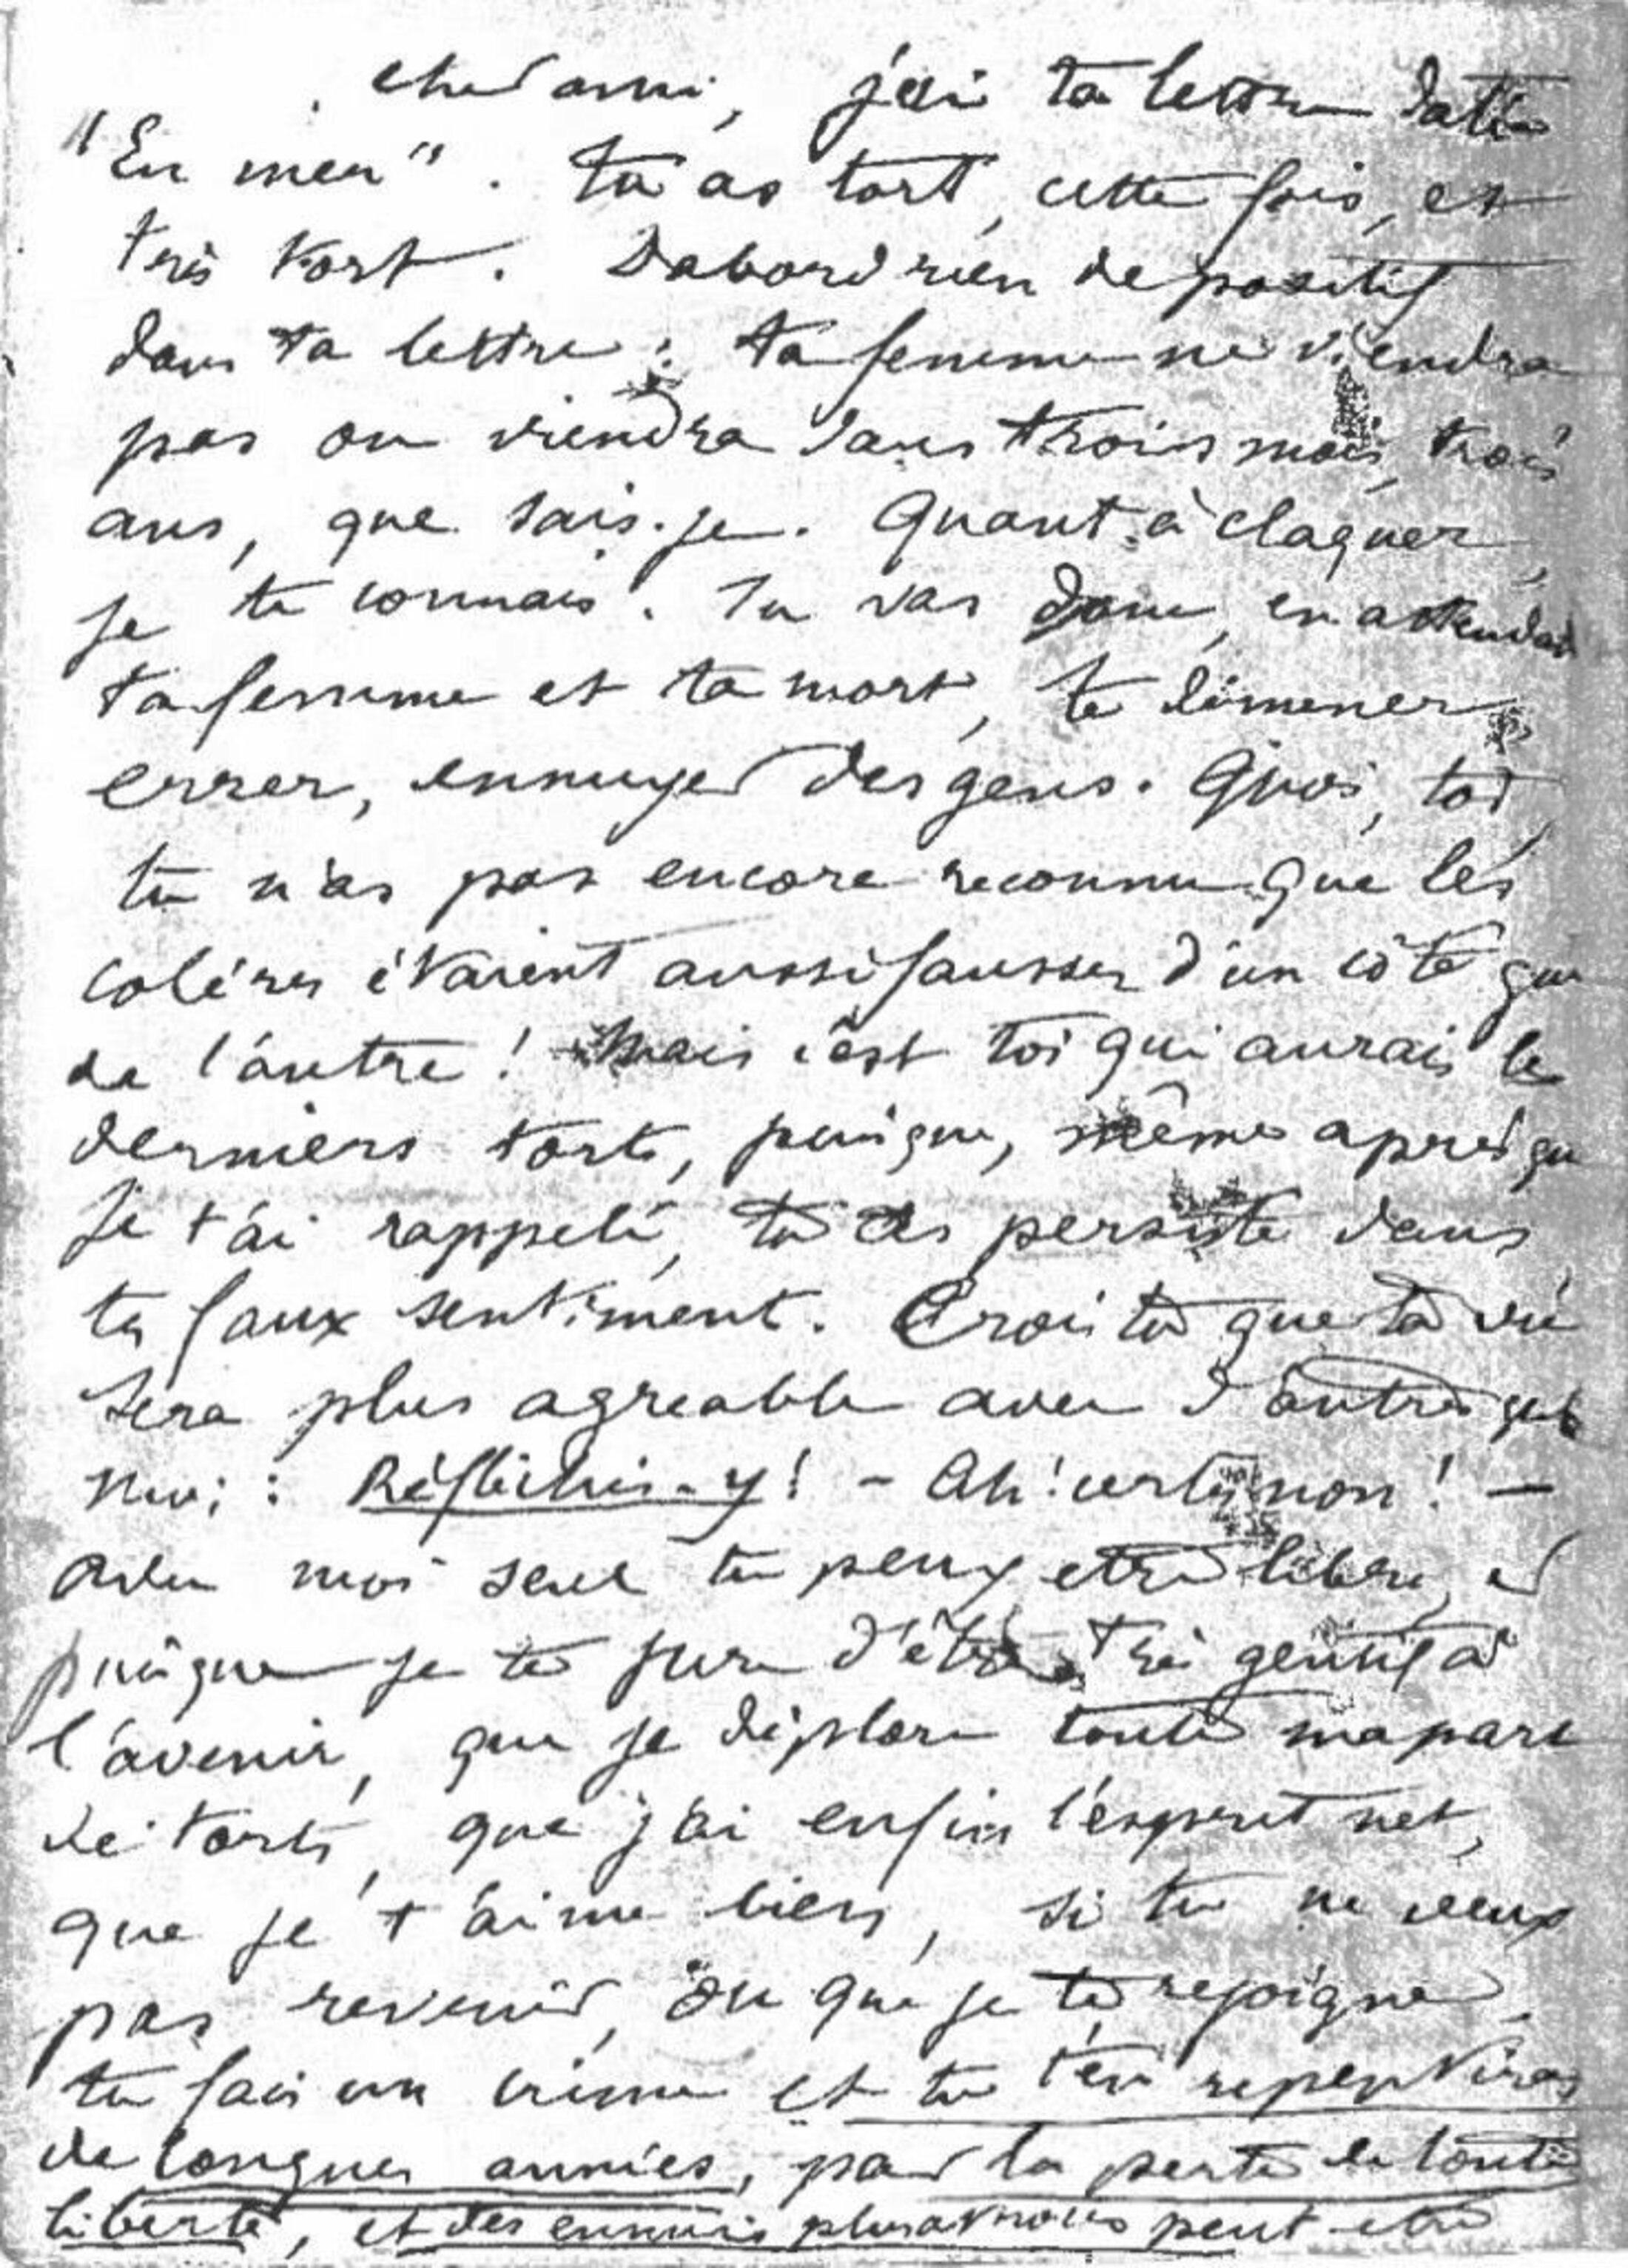 cher ami, j'ai ta lettre datée
"En mer". Tu as tort, cette fois, et
très tort. D'abord rien de positif
dans ta lettre : ta femme ne viendra
pas ou viendra dans trois mois, trois
ans, que sais-je. Quant à claquer,
je te connais. Tu vas donc, en attendant
ta femme et ta mort, te démener,
errer, ennuyer des gens. Quoi, toi,
tu n'as pas encore reconnu que les
colères étaient aussi fausses d'un côté que
de l'autre ! Mais c'est toi qui aurais les
derniers torts, puisque, même après que
je t'ai rappelé, tu as persisté dans
tes faux sentiment. Crois tu que ta vie
sera plus agréable avec d'autres que
moi : Réfléchis-y ! - Ah ! certes non ! -
Avec moi seul tu peux être libre, et
puisque je te jure d'être très gentil à
l'avenir, que je déplore toute ma part
de torts, que j'ai enfin l'esprit net,
que je t'aime bien, si tu ne veux
pas revenir, ou que je te rejoigne,
tu fais un crime et tu t'en repentiras
de longues années, par la perte de toute
liberté, et des ennuis plus atroces peut-être